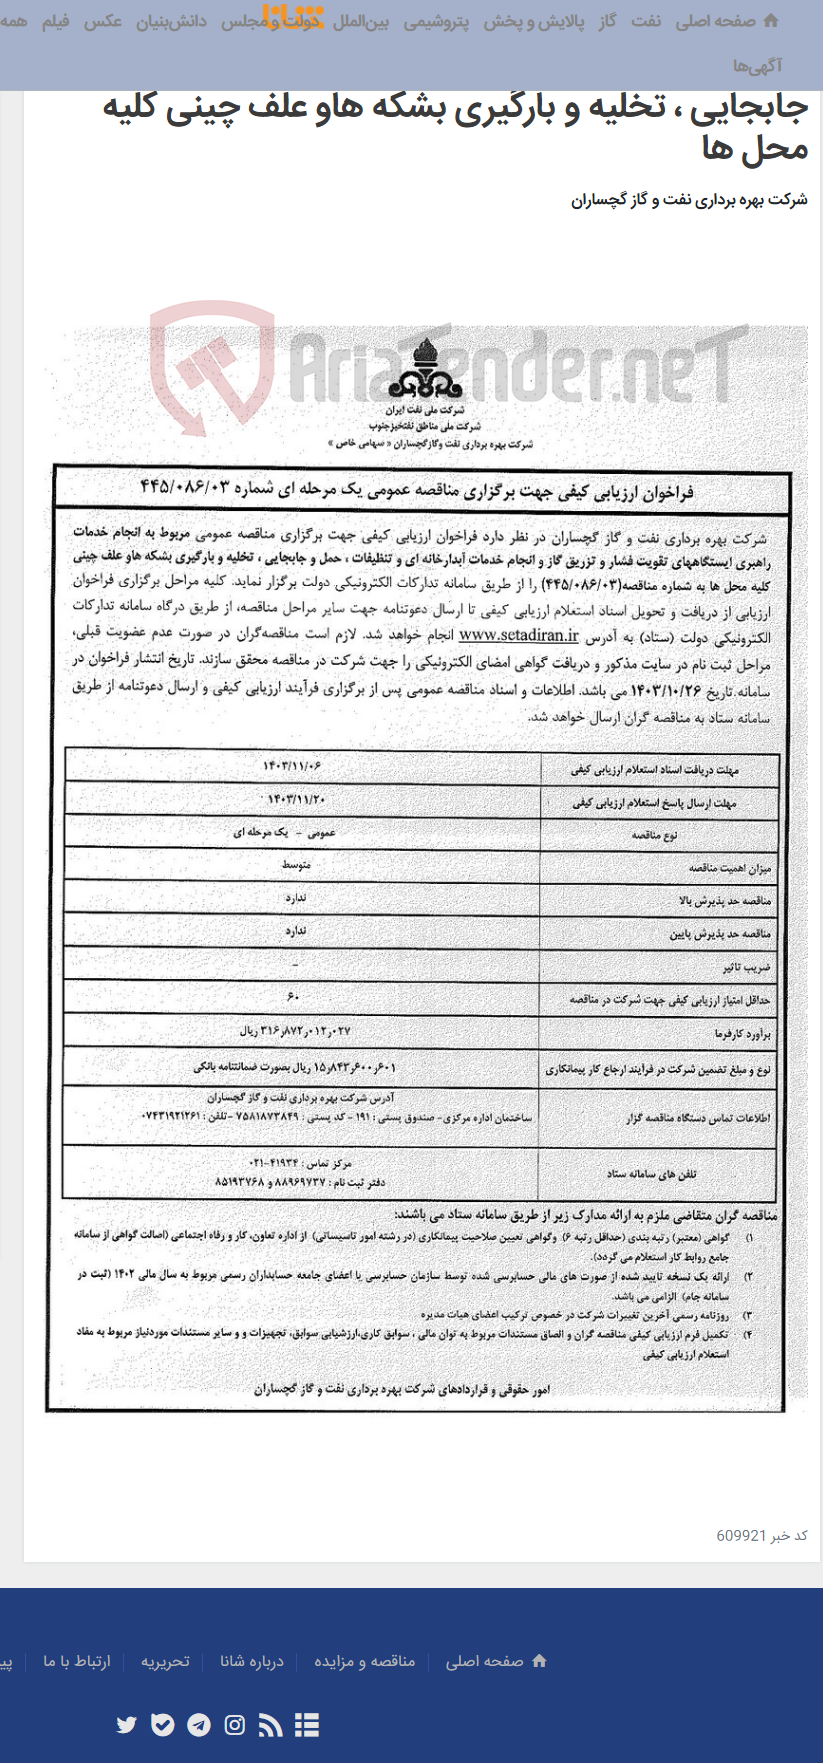 صفحه اصلی نفت گاز پالایش و پخش پتروشیمی بین‌الملل دولت و مجلس دانش‌بنیان عکس فیلم همه
شانا
آگهی‌ها
جابجایی ، تخلیه و بارگیری بشکه هاو علف چینی کلیه
محل ها
شرکت بهره برداری نفت و گاز گچساران
AriaTender.neT
شرکت ملی نفت ایران
شرکت ملی مناطق نفتخیزجنوب
شرکت بهره برداری نفت وگازگچساران « سهامی خاص »
فراخوان ارزیابی کیفی جهت برگزاری مناقصه عمومی یک مرحله ای شماره ۴۴۵/۰۸۶/۰۳
شرکت بهره برداری نفت و گاز گچساران در نظر دارد فراخوان ارزیابی کیفی جهت برگزاری مناقصه عمومی مربوط به انجام خدمات
راهبری ایستگاههای تقویت فشار و تزریق گاز و انجام خدمات آبدارخانه ای و تنظیفات ، حمل و جابجایی ، تخلیه و بارگیری بشکه هاو علف چینی
کلیه محل ها به شماره مناقصه(۴۴۵/۰۸۶/۰۳) را از طریق سامانه تدارکات الکترونیکی دولت برگزار نماید. کلیه مراحل برگزاری فراخوان
ارزیابی از دریافت و تحویل اسناد استعلام ارزیابی کیفی تا ارسال دعوتنامه جهت سایر مراحل مناقصه، از طریق درگاه سامانه تدارکات
الکترونیکی دولت (ستاد) به آدرس www.setadiran.ir انجام خواهد شد. لازم است مناقصه‌گران در صورت عدم عضویت قبلی،
مراحل ثبت نام در سایت مذکور و دریافت گواهی امضای الکترونیکی را جهت شرکت در مناقصه محقق سازند. تاریخ انتشار فراخوان در
سامانه تاریخ ۱۴۰۳/۱۰/۲۶ می باشد. اطلاعات و اسناد مناقصه عمومی پس از برگزاری فرآیند ارزیابی کیفی و ارسال دعوتنامه از طریق
سامانه ستاد به مناقصه گران ارسال خواهد شد.
مهلت دریافت اسناد استعلام ارزیابی کیفی ۱۴۰۳/۱۱/۰۶
مهلت ارسال پاسخ استعلام ارزیابی کیفی ۱۴۰۳/۱۱/۲۰
نوع مناقصه عمومی - یک مرحله ای
میزان اهمیت مناقصه متوسط
مناقصه حد پذیرش بالا ندارد
مناقصه حد پذیرش پایین ندارد
ضریب تاثیر -
حداقل امتیاز ارزیابی کیفی جهت شرکت در مناقصه ۶۰
برآورد کارفرما ۳۱۶٫۸۷۲٫۰۱۲٫۰۲۷ ریال
نوع و مبلغ تضمین شرکت در فرآیند ارجاع کار پیمانکاری ۱۵٫۸۴۳٫۶۰۰٫۶۰۱ ریال بصورت ضمانتنامه بانکی
آدرس شرکت بهره برداری نفت و گاز گچساران
اطلاعات تماس دستگاه مناقصه گزار ساختمان اداره مرکزی- صندوق پستی : ۱۹۱ - کد پستی : ۷۵۸۱۸۷۳۸۴۹ -تلفن : ۰۷۴۳۱۹۲۱۲۶۱
مرکز تماس : ۴۱۹۳۴-۰۲۱
تلفن های سامانه ستاد
دفتر ثبت نام : ۸۸۹۶۹۷۳۷ و ۸۵۱۹۳۷۶۸
مناقصه گران متقاضی ملزم به ارائه مدارک زیر از طریق سامانه ستاد می باشند:
۱) گواهی (معتبر) رتبه بندی (حداقل رتبه ۶) وگواهی تعیین صلاحیت پیمانکاری (در رشته امور تاسیساتی) از اداره تعاون، کار و رفاه اجتماعی (اصالت گواهی از سامانه
جامع روابط کار استعلام می گردد).
۲) ارائه یک نسخه تایید شده از صورت های مالی حسابرسی شده توسط سازمان حسابرسی یا اعضای جامعه حسابداران رسمی مربوط به سال مالی ۱۴۰۲ (ثبت در
سامانه جام) الزامی می باشد.
۳) روزنامه رسمی آخرین تغییرات شرکت در خصوص ترکیب اعضای هیات مدیره
۴) تکمیل فرم ارزیابی کیفی مناقصه گران و الصاق مستندات مربوط به توان مالی ، سوابق کاری،ارزشیابی سوابق، تجهیزات و و سایر مستندات موردنیاز مربوط به مفاد
استعلام ارزیابی کیفی
امور حقوقی و قراردادهای شرکت بهره برداری نفت و گاز گچساران
کد خبر 609921
صفحه اصلی مناقصه و مزایده درباره شانا تحریریه ارتباط با ما پی